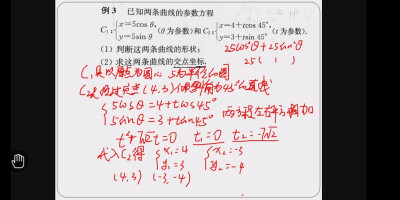 例 3 已知两条曲线的参数方程
C₁:{x=5cos θ, y=5sin θ (θ为参数)和C₂:{x=4+tcos 45°, y=3+tsin 45° (t为参数).
(1) 判断这两条曲线的形状;
(2) 求这两条曲线的交点坐标.
25cos²θ+25sin²θ
25( )
C₁是以原点为圆心 5为半径的圆
C₂是过定点(4,3) 倾斜角为45°的直线
{5cosθ=4+tcos45°
5sinθ=3+tsin45° 两方程左右平方相加
t²+7√2t=0 t₁=0 t₂=-7√2
代入C₂得 {x₁=4 y₁=3 {x₂=-3 y₂=-4
(4,3) (-3,-4)